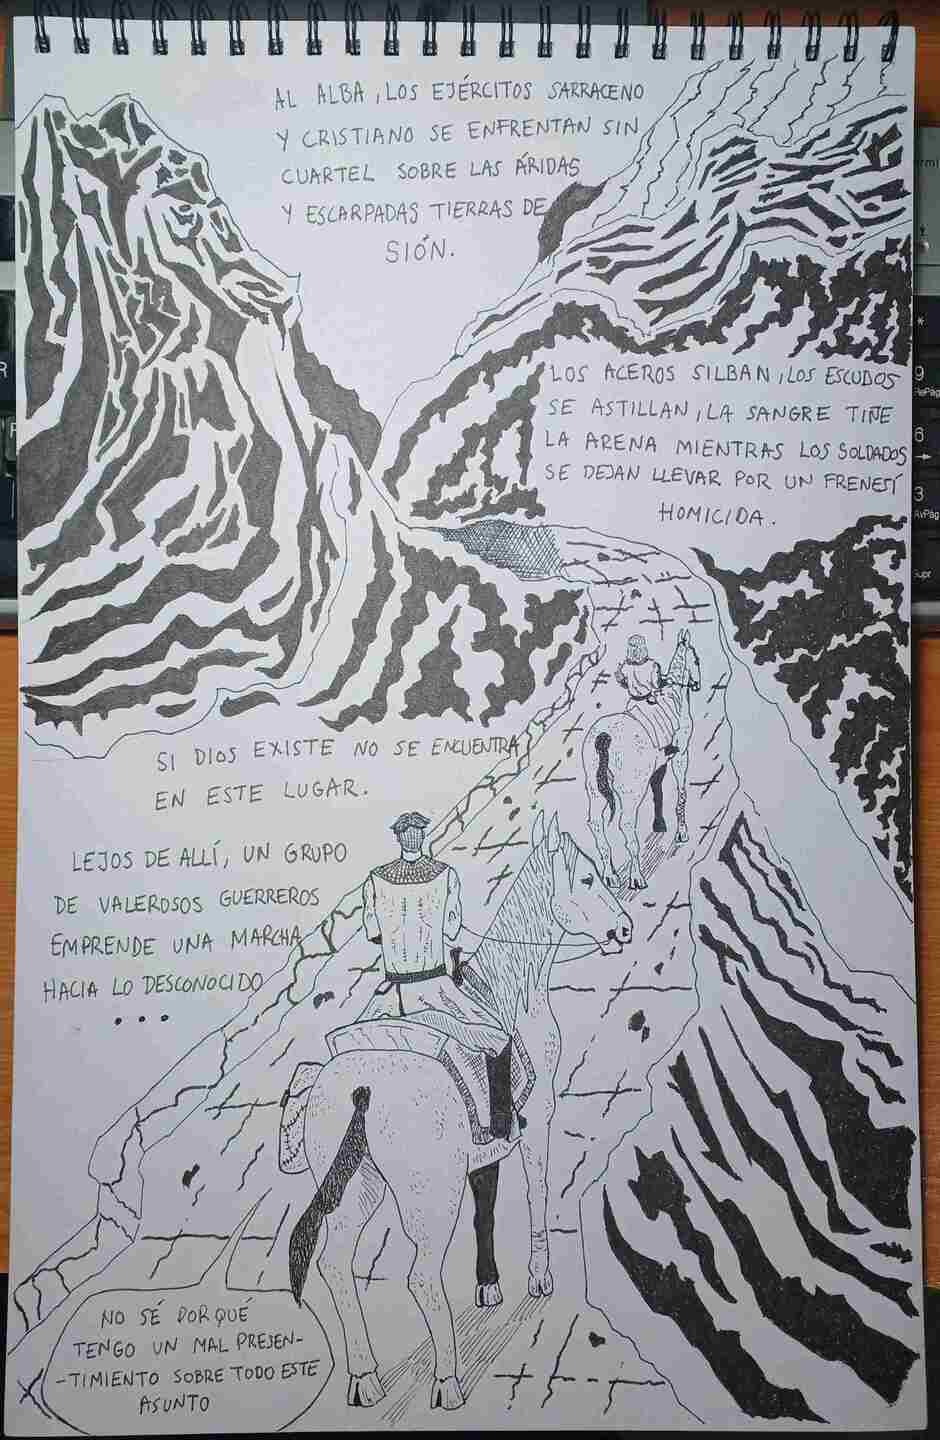 AL ALBA, LOS EJÉRCITOS SARRACENO
Y CRISTIANO SE ENFRENTAN SIN
CUARTEL SOBRE LAS ÁRIDAS
Y ESCARPADAS TIERRAS DE
SIÓN.
LOS ACEROS SILBAN, LOS ESCUDOS
SE ASTILLAN, LA SANGRE TIÑE
LA ARENA MIENTRAS LOS SOLDADOS
SE DEJAN LLEVAR POR UN FRENESÍ
HOMICIDA.
SI DIOS EXISTE NO SE ENCUENTRA
EN ESTE LUGAR.
LEJOS DE ALLÍ, UN GRUPO
DE VALEROSOS GUERREROS
EMPRENDE UNA MARCHA
HACIA LO DESCONOCIDO
...
NO SÉ PORQUÉ
TENGO UN MAL PRESEN-
-TIMIENTO SOBRE TODO ESTE
ASUNTO
9
6
3
Supr